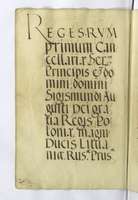 REGESTRVM
primum Can
cellariæ Ser:
Principis & do
mini domini
Sigismundi Au
gusti Dei gra
tia Regis Po
loniæ, magni
Ducis Litua
niæ Rus: Prus: